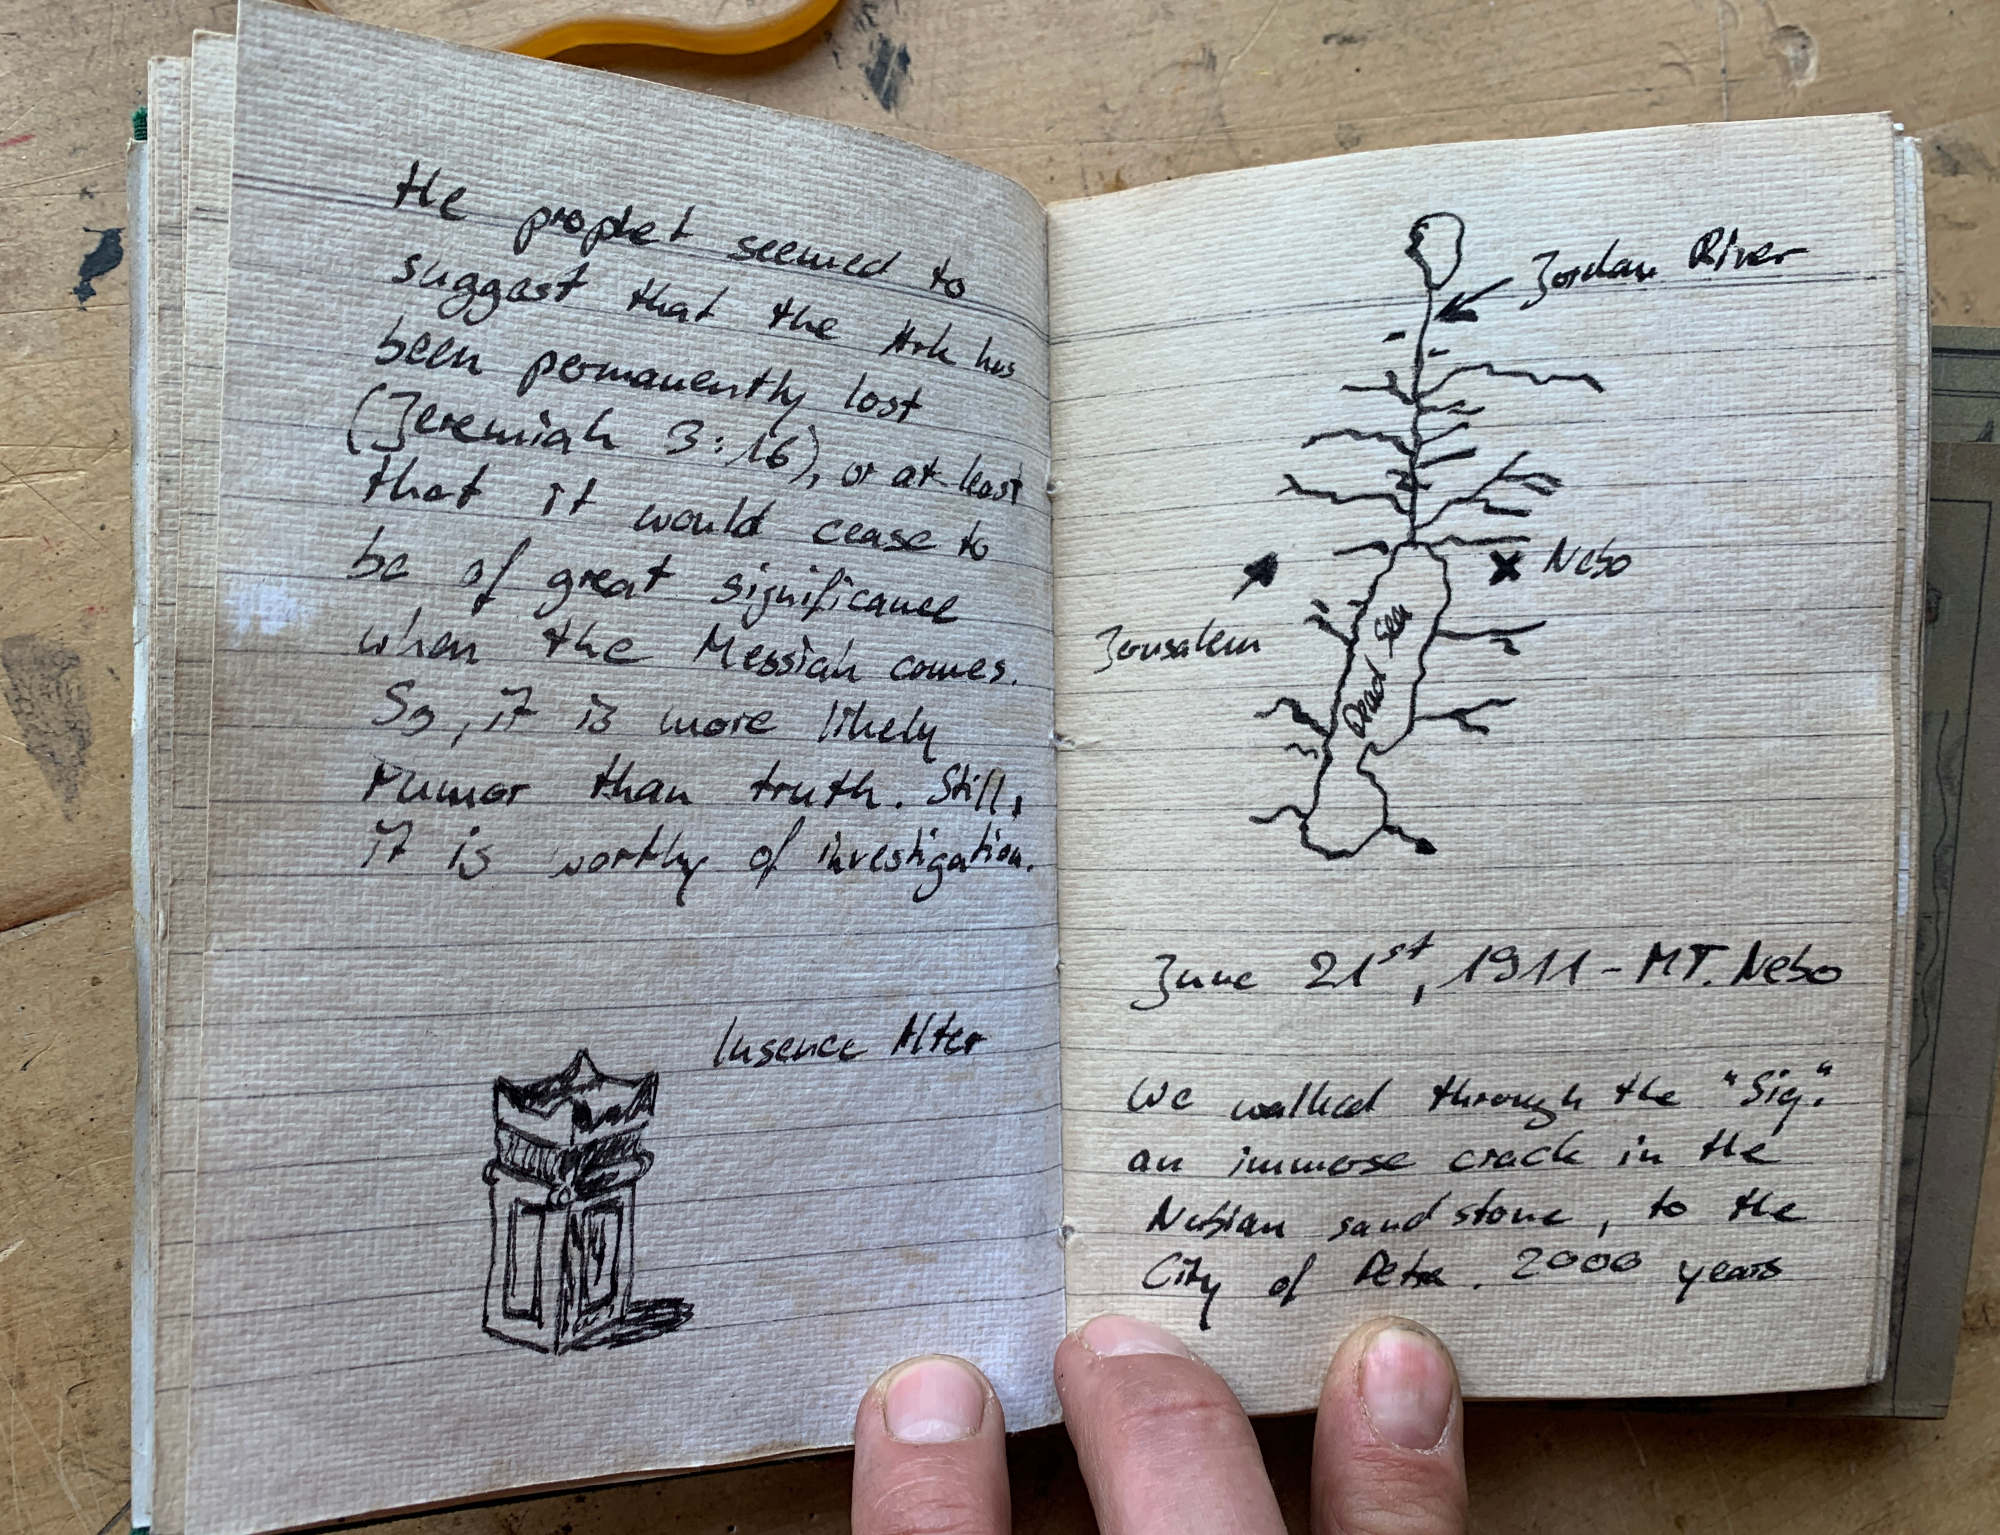 The prophet seemed to
suggest that the Ark has
been permanently lost
(Jeremiah 3:16), or at least
that it would cease to
be of great significance
when the Messiah comes.
So, it is more likely
rumor than truth. Still,
it is worthy of investigation.
Insence Alter
Jordan River
Nebo
Jerusalem
Dead Sea
June 21st, 1911 - MT. Nebo
We walked through the "Siq".
an immerse crack in the
Nubian sandstone, to the
City of Petra. 2000 years